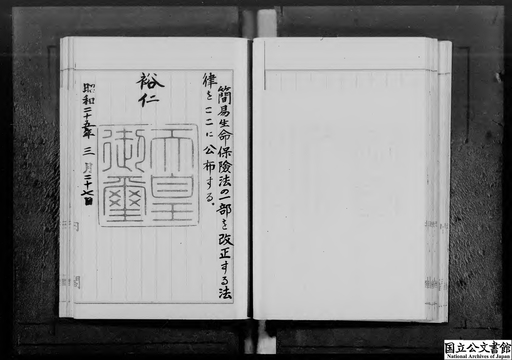 簡易生命保險法の一部を改正する法
律をここに公布する。
裕仁
天皇
御璽
昭和二十五年三月二十七日
国立公文書館
National Archives of Japan